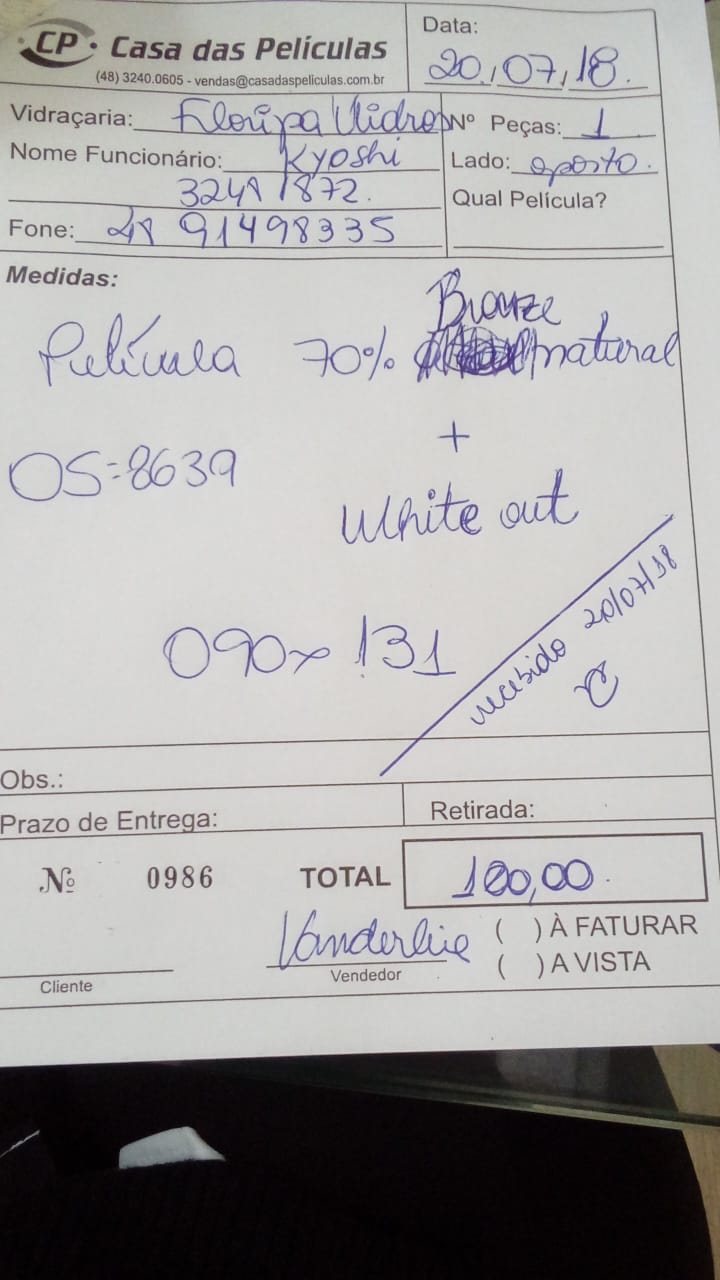 CP. Casa das Películas
(48) 3240.0605 - vendas@casadaspeliculas.com.br
Data:
20,07,18.
Vidraçaria: Floripa Vidros
Nº Peças: 1
Nome Funcionário: Kyoshi
Lado: oposto.
3248 1872.
Qual Película?
Fone: 48 91498335
Medidas:
Bronze
Película 70% natural
+
OS=8639
White out
090x 131
recebido 20/07/18
Obs.:
Prazo de Entrega:
Retirada:
Nº 0986 TOTAL 100,00.
( ) À FATURAR
( ) A VISTA
Cliente
Vendedor